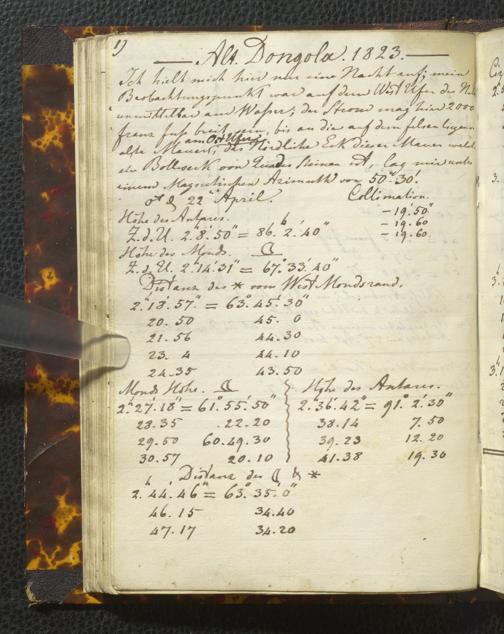 17
Alt Dongola. 1823.
Ich hielt mich hier nur eine Nacht auf; mein
Beobachtungspunkt war auf dem West Ufer des Nils
unmittelbar am Wasser; der Strom mag hier 2000
franz fuss breit sein, bis an die auf dem felsen liegende
am Ost Ufer
alte Mauer, die Nördliche Eck dieser Mauer welche
ein Bollwerk von Steinen ist, lag mir unter
einem Magnetischen Azimuth von 50° 30'
22 April. Collimation.
Höhe des Antares. - 19.50"
Z. d. U. 2.8.50" = 86.2.40" - 19.60
- 19.60.
Höhe des Monds. ☾
Z. d. U. 2.14.31" = 67.33.40"
Distanz des * vom West Mondsrand.
2.18.57" = 63.45.30"
20.50 45. 0
21.56 44.30
23. 4 44.10
24.35 43.50
Monds Höhe. ☾ Höhe des Antares.
2.27.18" = 61.55.50" 2.36.42" = 91.2.30"
28.35 .22.20 38.14 7.50
29.50 60.49.30 39.23 12.20
30.57 20.10 41.38 19.30
Distanz des ☾ & *
2.44.46" = 63.35.0"
46.15 34.40
47.17 34.20